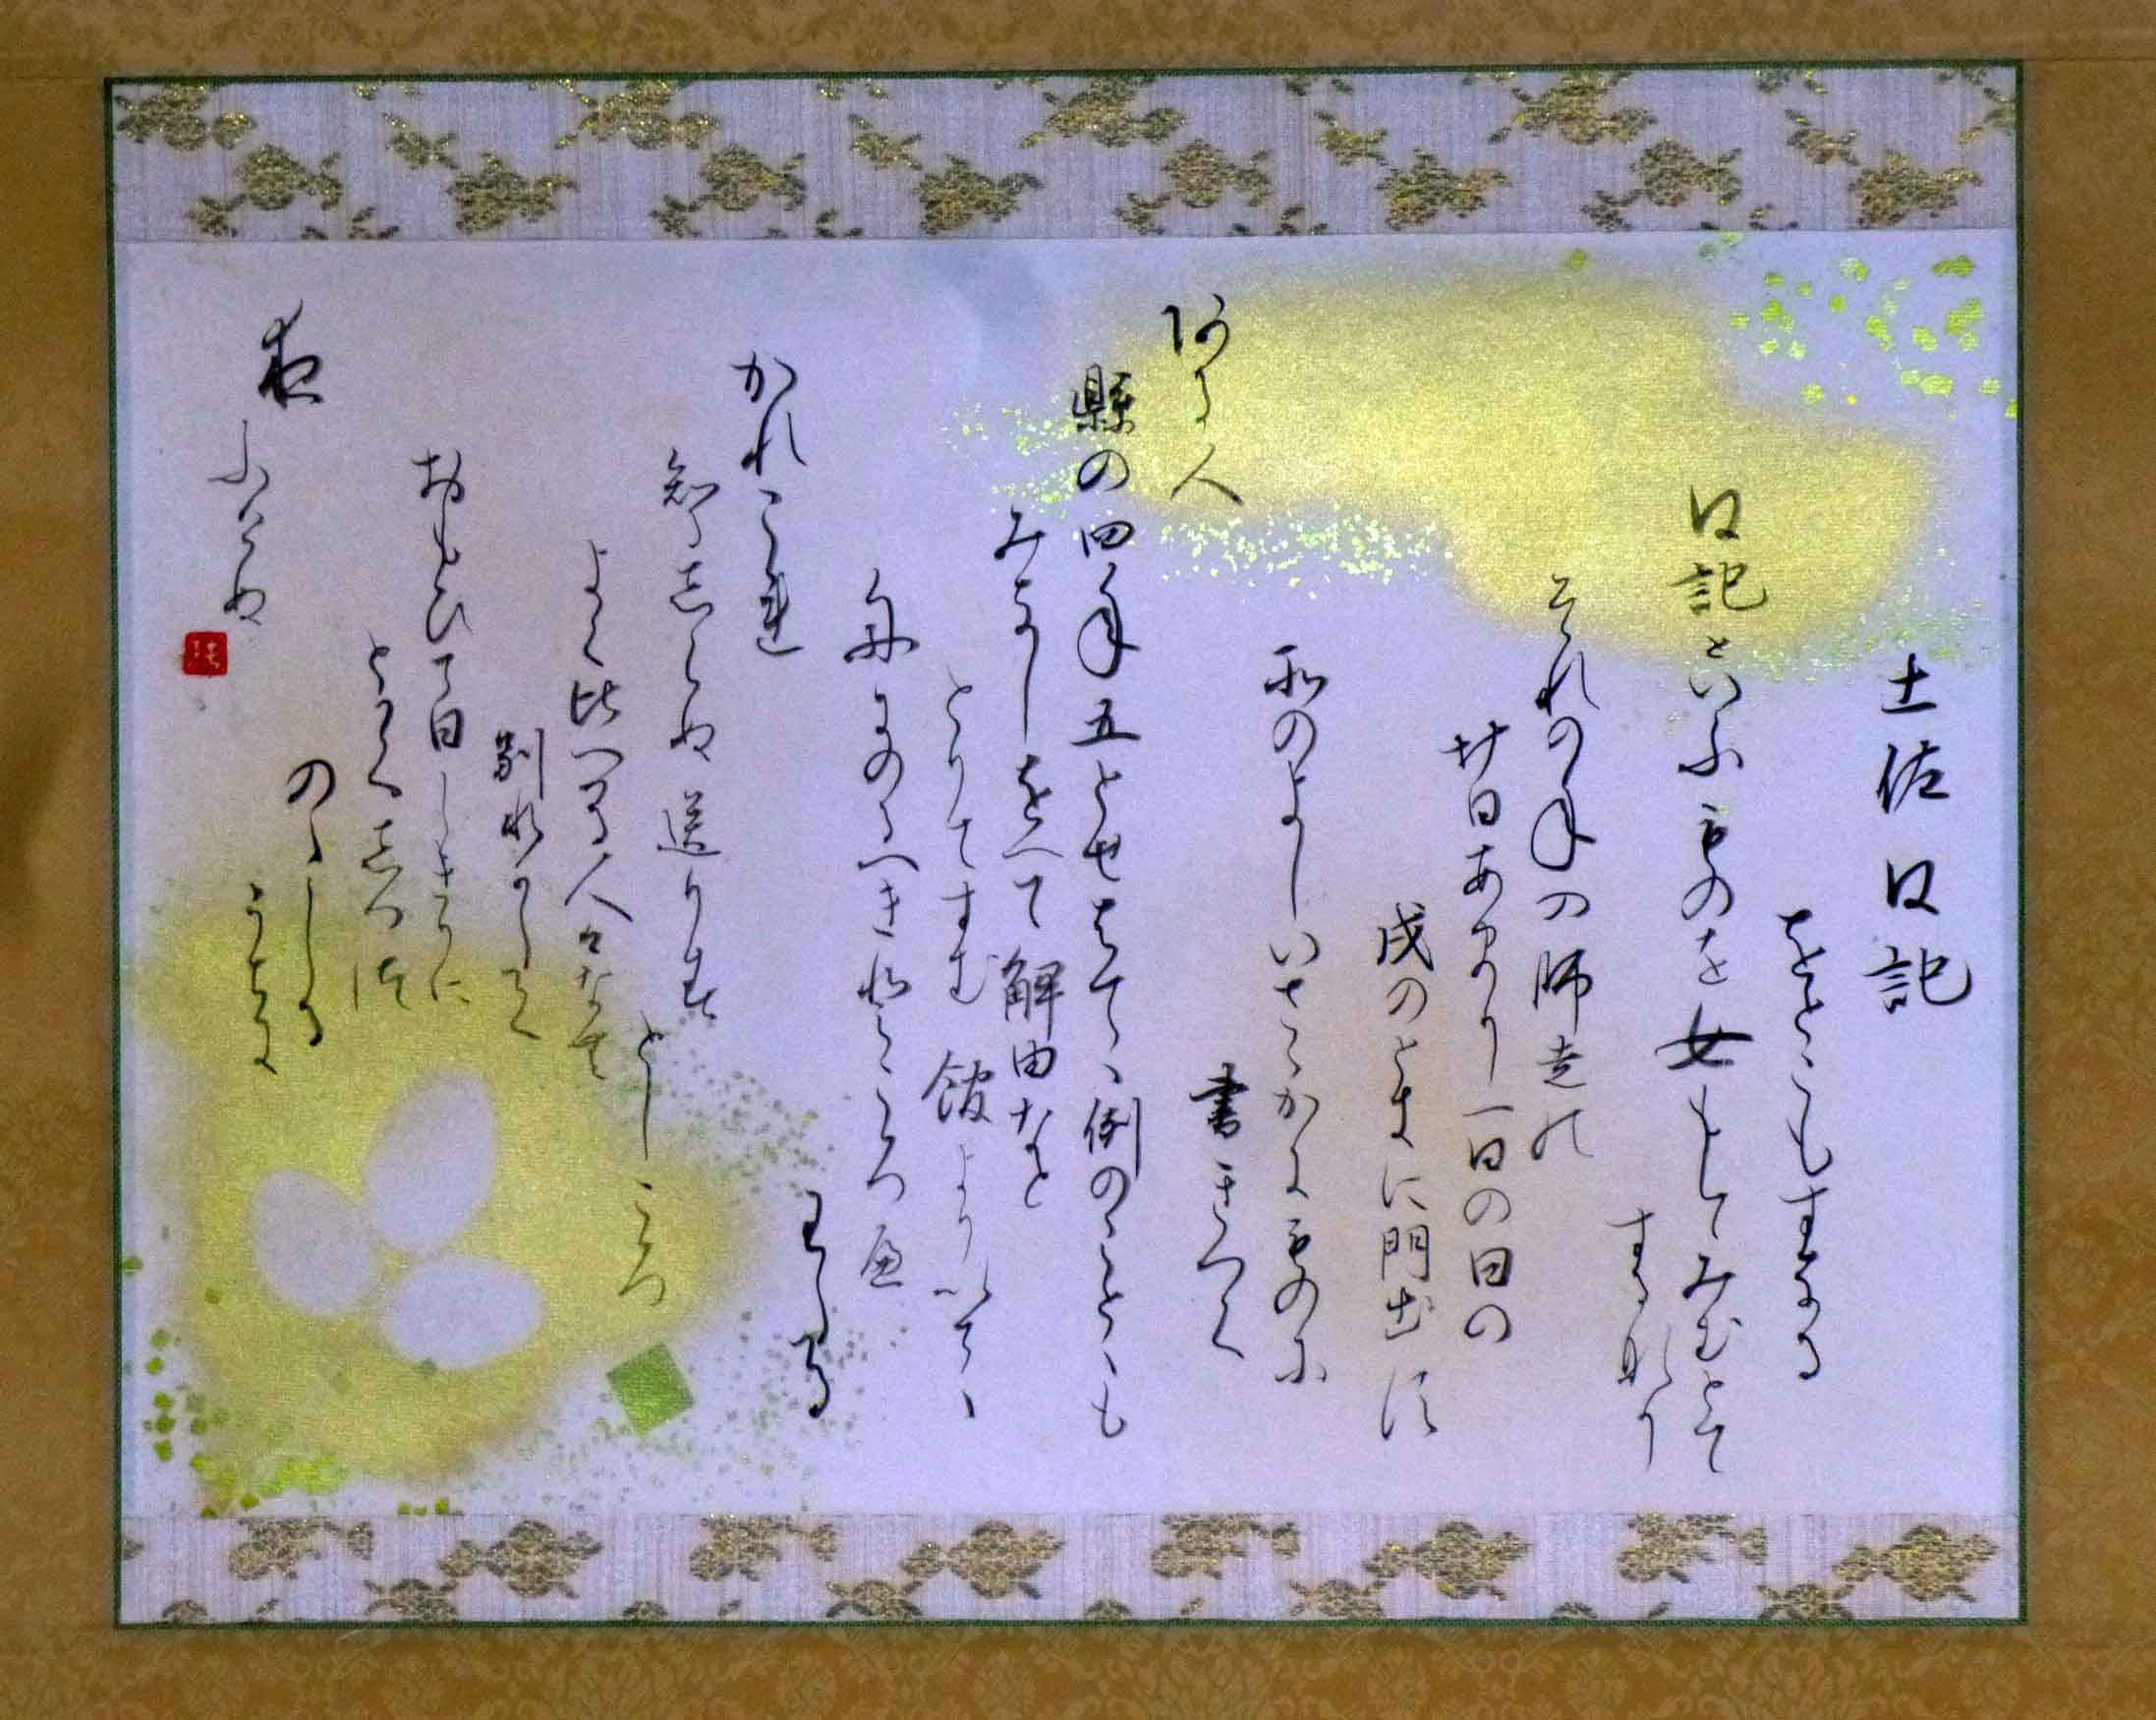 土佐日記
をとこもすなる
日記といふものを女もしてみむとて
するなり
それの年の師走の
廿日あまり一日の日の
戌のときに門出す
そのよしいさゝかにものに
書きつく
ある人
縣の四年五とせはてゝ例のことゝも
みなしをへて解由なと
とりてすむ館よりいてゝ
舟にのるへきところへ
わたる
かれこれ
知るしらぬ送りす
としころ
よく比へつる人々なむ
別れかたく
おもひて日しきりに
とかくしつつ
のゝしる
うちに
夜
ふけぬ